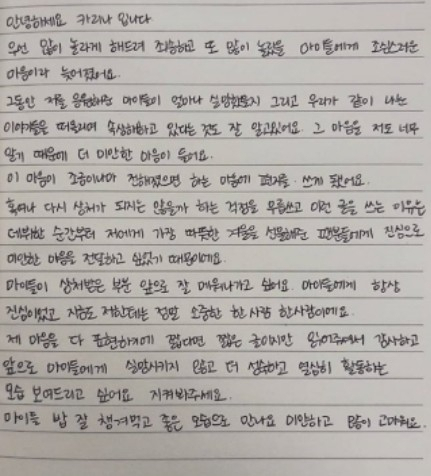 안녕하세요 카리나 입니다
우선 많이 놀라게 해드려 죄송하고 또 많이 놀랐을 마이들에게 조심스러운
마음이라 늦어졌어요.
그동안 저를 응원해준 마이들이 얼마나 실망했을지 그리고 우리가 같이 나눈
이야기들을 떠올리며 속상해하고 있다는 것도 잘 알고있어요. 그 마음을 저도 너무
알기 때문에 더 미안한 마음이 들어요.
이 마음이 조금이나마 전해졌으면 하는 마음에 편지를 쓰게 됐어요.
혹여나 다시 상처가 되지는 않을까 하는 걱정을 무릅쓰고 이런 글을 쓰는 이유은
데뷔한 순간부터 저에게 가장 따뜻한 겨울을 선물해준 팬분들에게 진심으로
미안한 마음을 전달하고 싶었기 때문이에요.
마이들이 상처받은 부분 앞으로 잘 메워나가고 싶어요. 마이들에게 항상
진심이었고 지금도 저한테는 정말 소중한 한 사람 한사람이에요.
제 마음을 다 표현하기에 짧다면 짧은 글이지만 읽어주셔서 감사하고
앞으로 마이들에게 실망시키지 않고 더 성숙하고 열심히 활동하는
모습 보여드리고 싶어요 지켜봐주세요.
마이들 밥 잘 챙겨먹고 좋은 모습으로 만나요 미안하고 많이 고마워요.